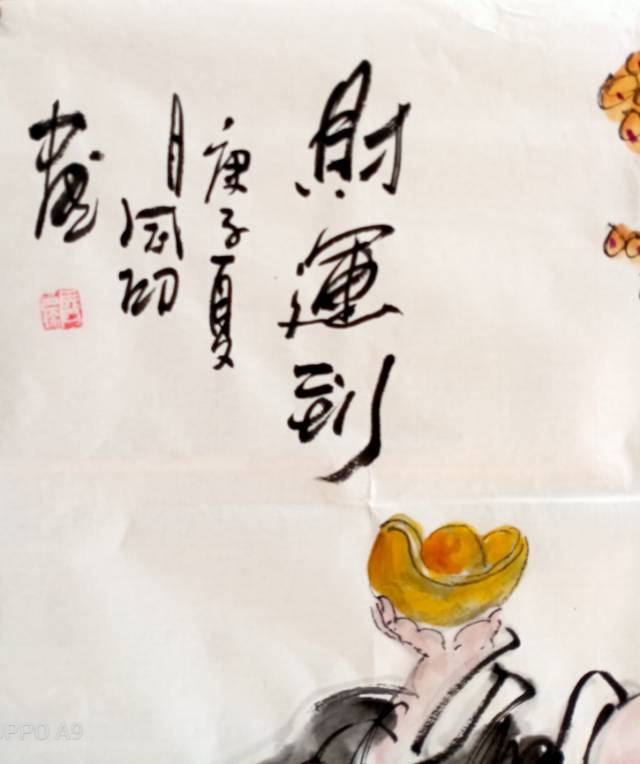 財運到
庚子夏
月
畫
OPPO A9